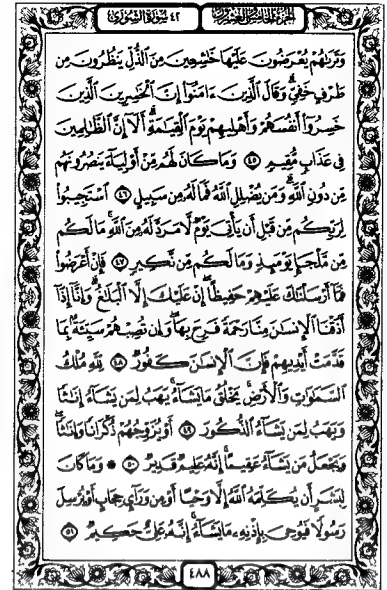 الجزء الخامس والعشرون
٤٢ سورة الشورى
وَتَرَىٰهُمْ يُعْرَضُونَ عَلَيْهَا خَٰشِعِينَ مِنَ ٱلذُّلِّ يَنظُرُونَ مِن
طَرْفٍ خَفِيٍّ ۗ وَقَالَ ٱلَّذِينَ ءَامَنُوٓا۟ إِنَّ ٱلْخَٰسِرِينَ ٱلَّذِينَ
خَسِرُوٓا۟ أَنفُسَهُمْ وَأَهْلِيهِمْ يَوْمَ ٱلْقِيَٰمَةِ ۗ أَلَآ إِنَّ ٱلظَّٰلِمِينَ
فِي عَذَابٍ مُّقِيمٍ ٤٥ وَمَا كَانَ لَهُم مِّنْ أَوْلِيَآءَ يَنصُرُونَهُم
مِّن دُونِ ٱللَّهِ ۗ وَمَن يُضْلِلِ ٱللَّهُ فَمَا لَهُۥ مِن سَبِيلٍ ٤٦ ٱسْتَجِيبُوا۟
لِرَبِّكُم مِّن قَبْلِ أَن يَأْتِيَ يَوْمٌ لَّا مَرَدَّ لَهُۥ مِنَ ٱللَّهِ ۚ مَا لَكُم
مِّن مَّلْجَإٍ يَوْمَئِذٍ وَمَا لَكُم مِّن نَّكِيرٍ ٤٧ فَإِنْ أَعْرَضُوا۟
فَمَآ أَرْسَلْنَٰكَ عَلَيْهِمْ حَفِيظًا ۖ إِنْ عَلَيْكَ إِلَّا ٱلْبَلَٰغُ ۗ وَإِنَّآ إِذَآ
أَذَقْنَا ٱلْإِنسَٰنَ مِنَّا رَحْمَةً فَرِحَ بِهَا ۖ وَإِن تُصِبْهُمْ سَيِّئَةٌۢ بِمَا
قَدَّمَتْ أَيْدِيهِمْ فَإِنَّ ٱلْإِنسَٰنَ كَفُورٌ ٤٨ لِّلَّهِ مُلْكُ
ٱلسَّمَٰوَٰتِ وَٱلْأَرْضِ ۚ يَخْلُقُ مَا يَشَآءُ ۚ يَهَبُ لِمَن يَشَآءُ إِنَٰثًا
وَيَهَبُ لِمَن يَشَآءُ ٱلذُّكُورَ ٤٩ أَوْ يُزَوِّجُهُمْ ذُكْرَانًا وَإِنَٰثًا ۖ
وَيَجْعَلُ مَن يَشَآءُ عَقِيمًا ۚ إِنَّهُۥ عَلِيمٌ قَدِيرٌ ٥٠ ۞ وَمَا كَانَ
لِبَشَرٍ أَن يُكَلِّمَهُ ٱللَّهُ إِلَّا وَحْيًا أَوْ مِن وَرَآئِ حِجَابٍ أَوْ يُرْسِلَ
رَسُولًا فَيُوحِيَ بِإِذْنِهِۦ مَا يَشَآءُ ۚ إِنَّهُۥ عَلِيٌّ حَكِيمٌ ٥١
٤٨٨